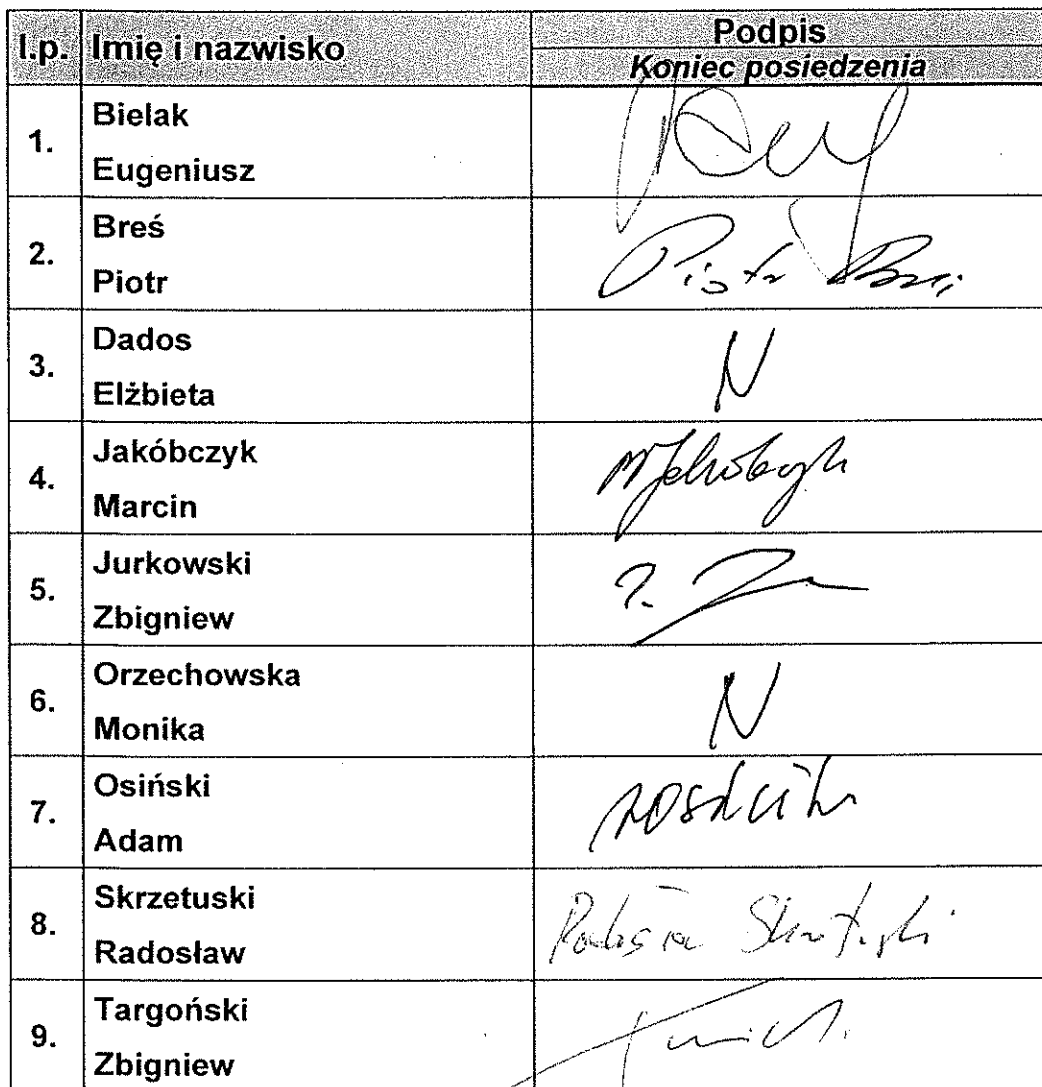 l.p. Imię i nazwisko Podpis
Koniec posiedzenia
1. Bielak
Eugeniusz
2. Breś
Piotr
Piotr Breś
3. Dados
Elżbieta
N
4. Jakóbczyk
Marcin
MJakóbczyk
5. Jurkowski
Zbigniew
6. Orzechowska
Monika
N
7. Osiński
Adam
8. Skrzetuski
Radosław
Radosław Skrzetuski
9. Targoński
Zbigniew